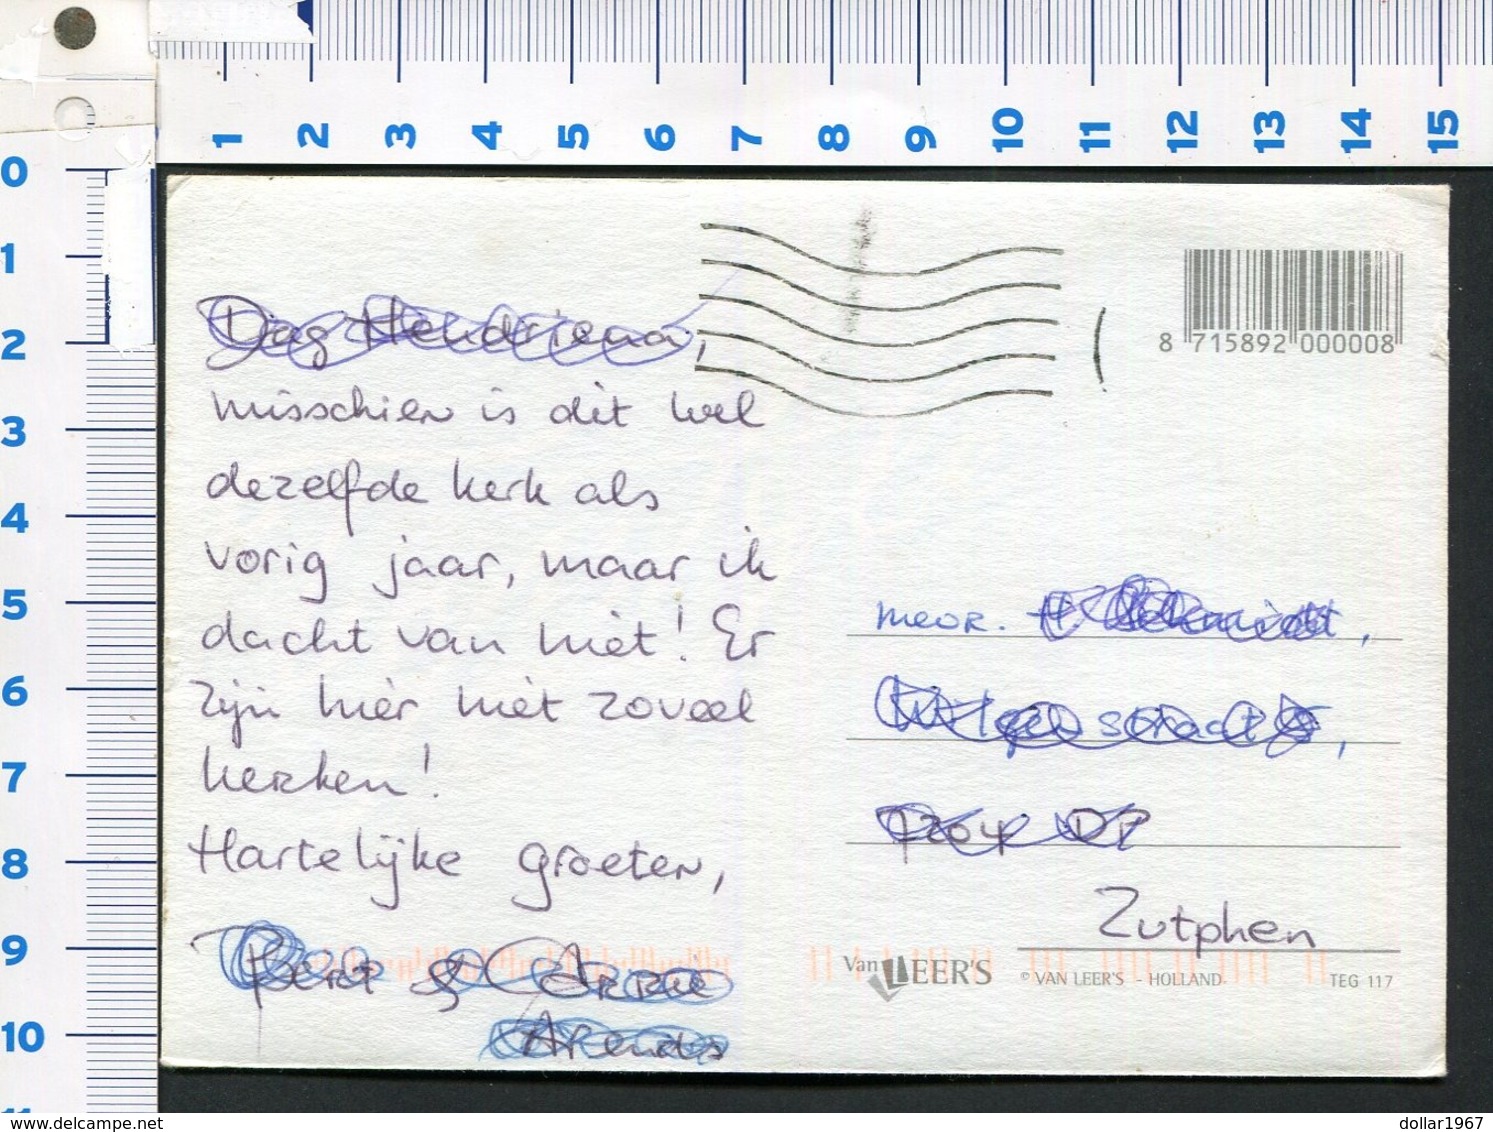 1 2 3 4 5 6 7 8 9 10 11 12 13 14 15
0
1
2
3
4
5
6
7
8
9
10
11
8 715892 000008
misschien is dit wel
dezelfde kerk als
vorig jaar, maar ik
dacht van niet! Er
zijn hier niet zoveel
kerken!
Hartelijke groeten,
mevr.
Zutphen
Van LEER'S © VAN LEER'S - HOLLAND TEG 117
www.delcampe.net
dollar1967